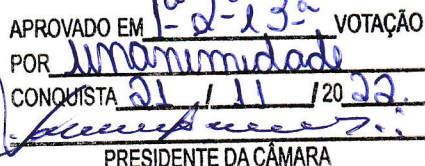 APROVADO EM 1ª 2ª e 3ª VOTAÇÃO
POR unanimidade
CONQUISTA 21 / 11 / 2022.
PRESIDENTE DA CÂMARA